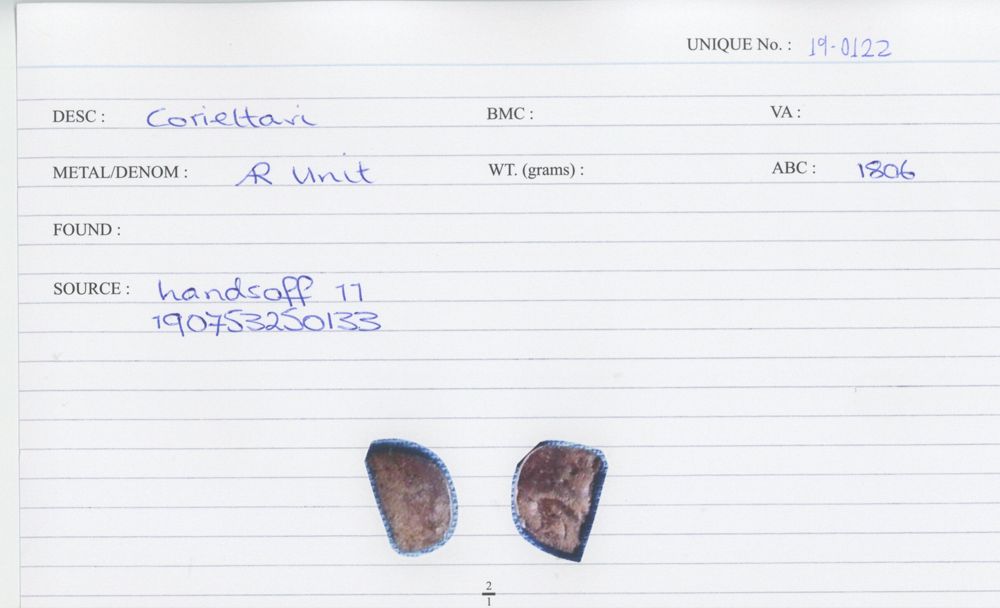 UNIQUE No. : 19-0122
DESC : Corieltavi BMC : VA :
METAL/DENOM : AR Unit WT. (grams) : ABC : 1806
FOUND :
SOURCE : handsoff 11
190753250133
2
1